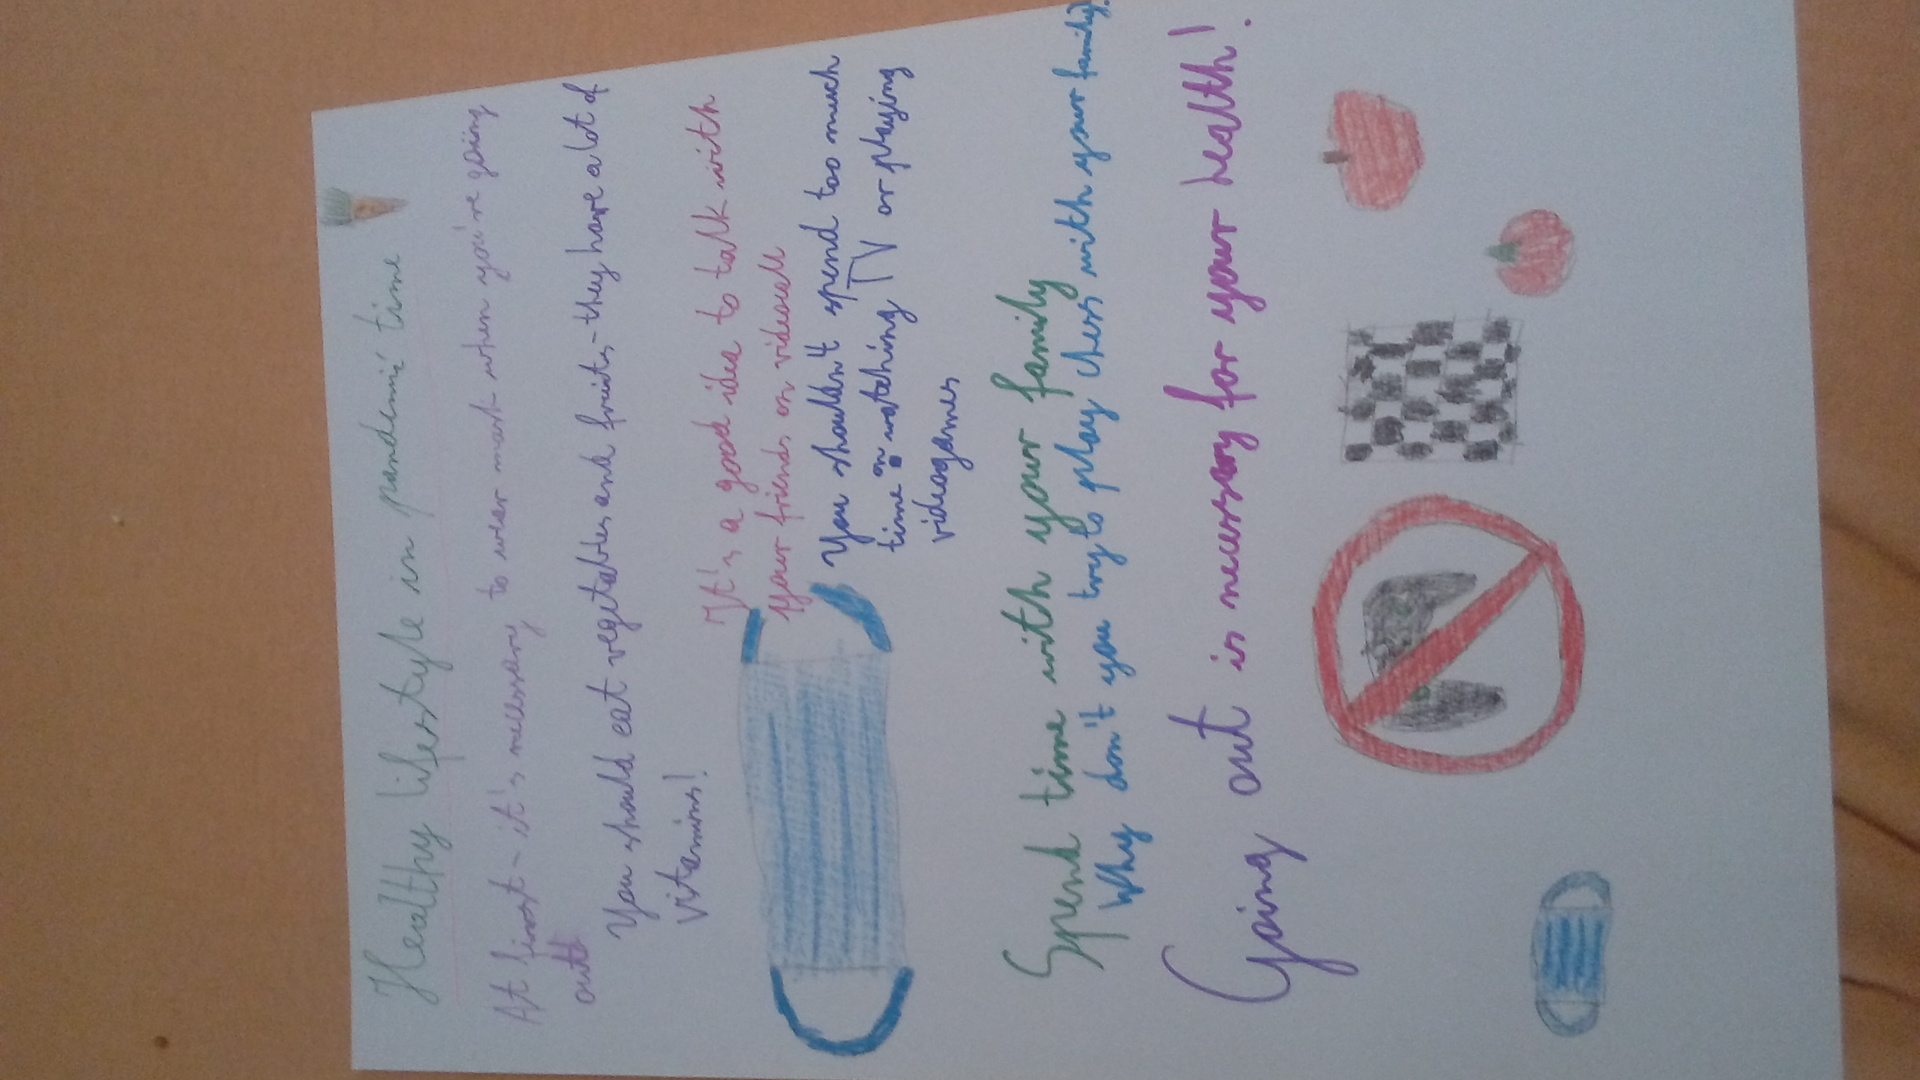 Healthy lifestyle in pandemic time
At first - it's necessary to wear mask when you're going
out
You should eat vegetables and fruits - they have a lot of
vitamins!
It's a good idea to talk with
your friends on videocall
You shouldn't spend too much
time on watching TV or playing
videogames
Spend time with your family
Why don't you try to play chess with your family?
Going out is necessary for your health!